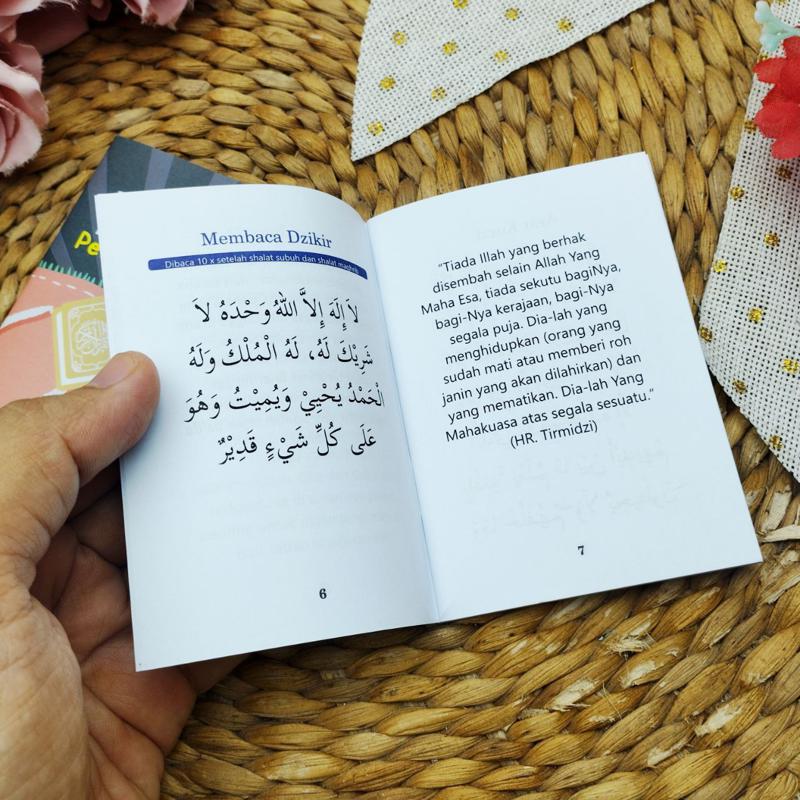 Membaca Dzikir
Dibaca 10 x setelah shalat subuh dan shalat maghrib
لاَ إِلَهَ إِلاَّ اللهُ وَحْدَهُ لاَ
شَرِيْكَ لَهُ، لَهُ الْمُلْكُ وَلَهُ
الْحَمْدُ يُحْيِيْ وَيُمِيْتُ وَهُوَ
عَلَى كُلِّ شَيْءٍ قَدِيْرٌ
6
“Tiada Illah yang berhak
disembah selain Allah Yang
Maha Esa, tiada sekutu bagiNya,
bagi-Nya kerajaan, bagi-Nya
segala puja. Dia-lah yang
menghidupkan (orang yang
sudah mati atau memberi roh
janin yang akan dilahirkan) dan
yang mematikan. Dia-lah Yang
Mahakuasa atas segala sesuatu.”
(HR. Tirmidzi)
7